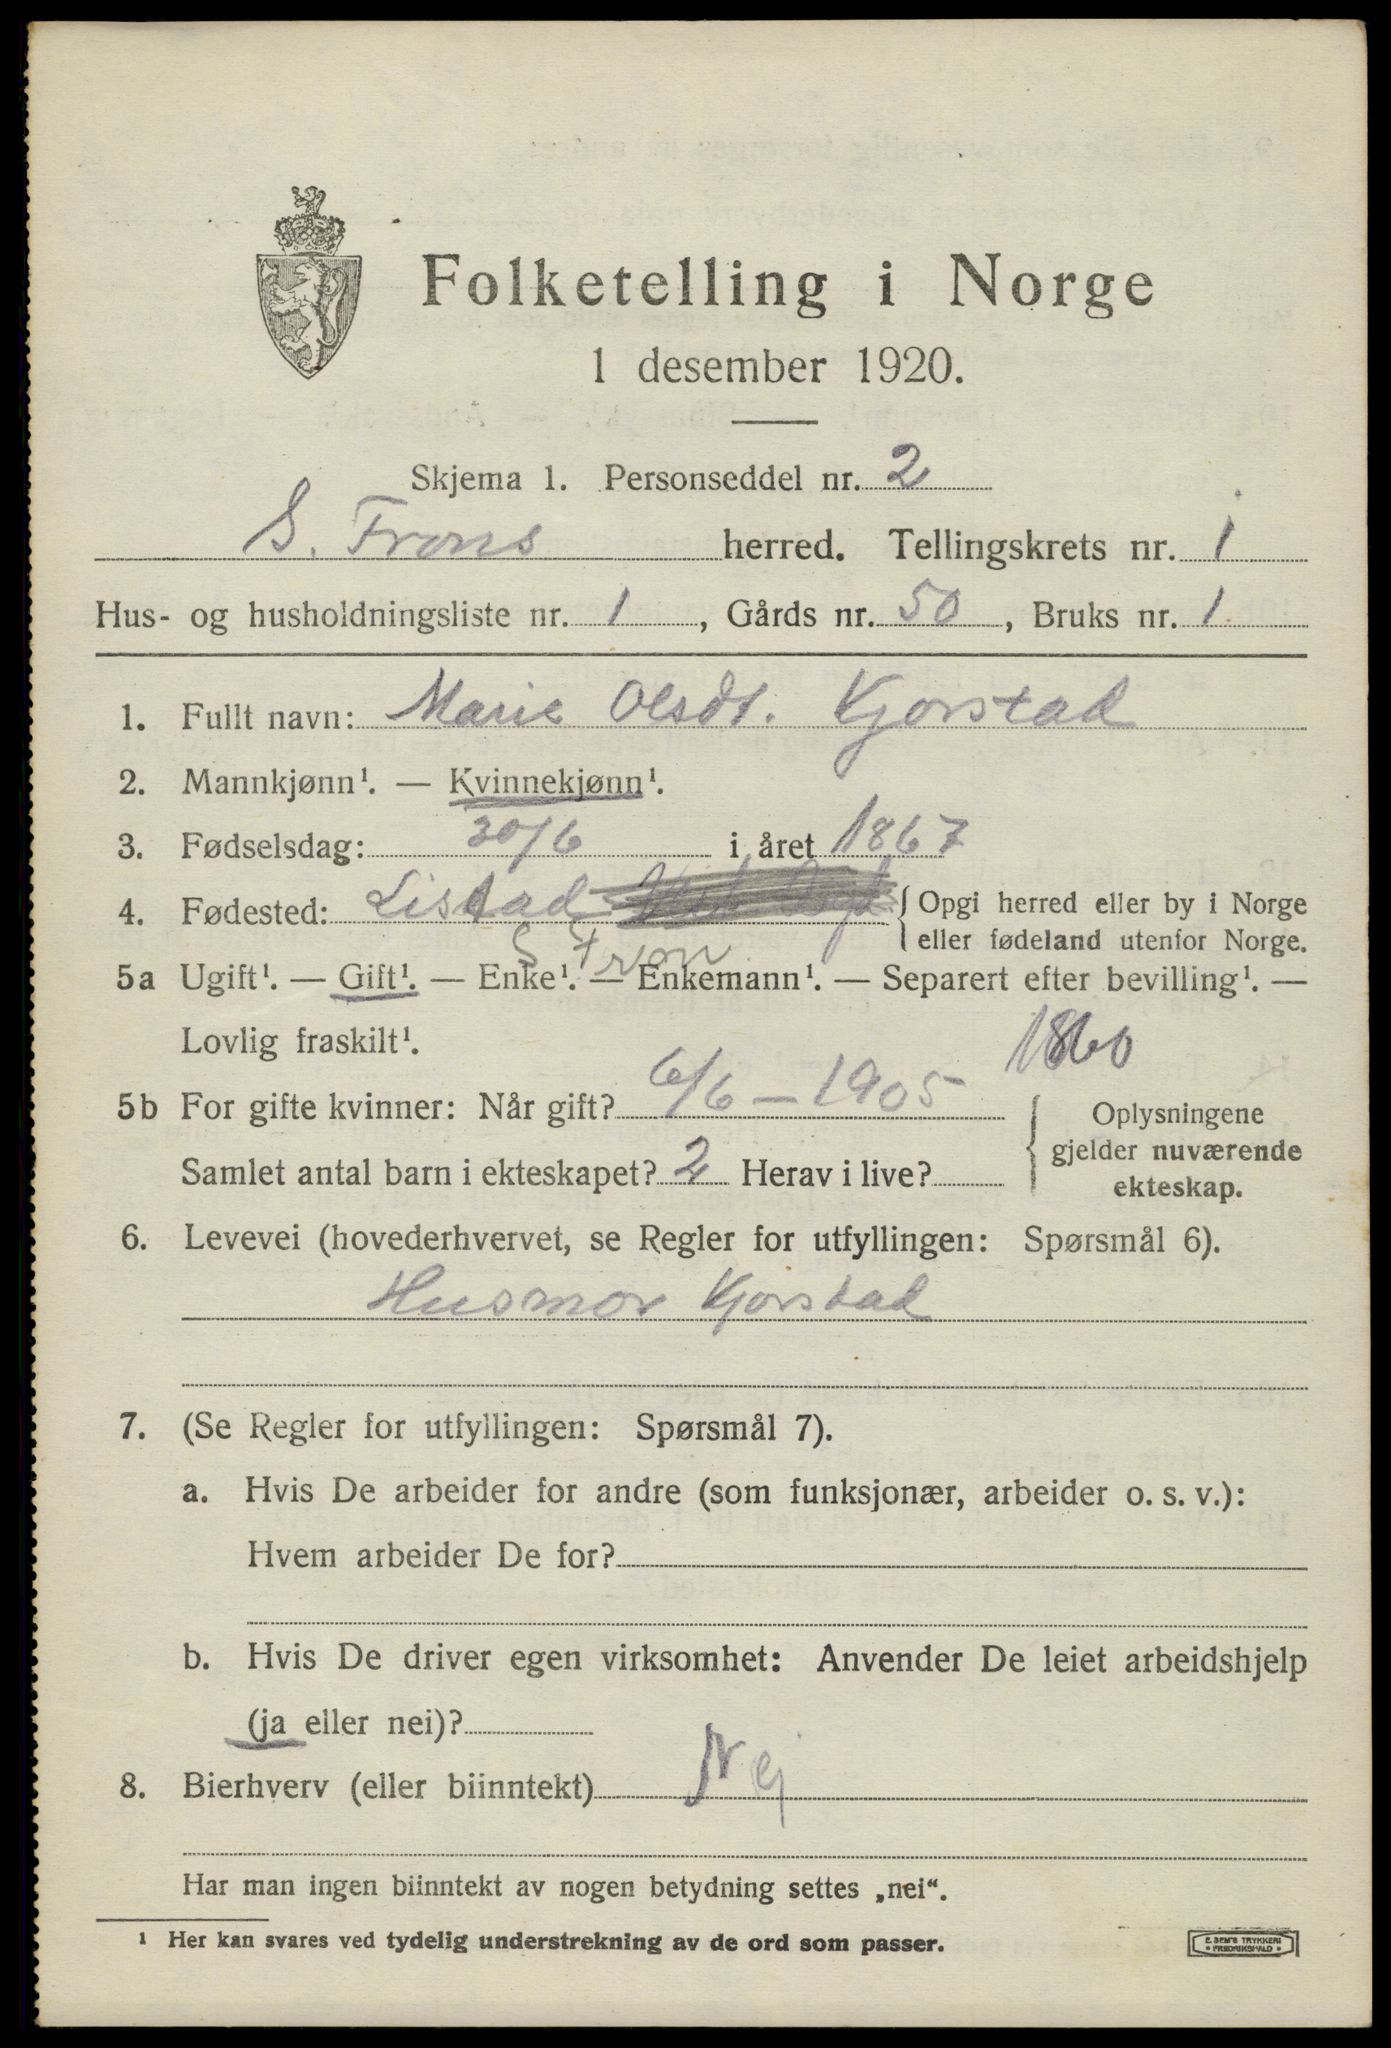 Folketelling i Norge
1 desember 1920.
Skjema 1. Personseddel nr. 2
S. Frons herred. Tellingskrets nr. 1
Hus- og husholdningsliste nr. 1, Gårds nr. 50, Bruks nr. 1
1. Fullt navn: Marie Olsdt. Kjorstad
2. Mannkjønn¹. — Kvinnekjønn¹.
3. Fødselsdag: 30/6 i året 1867
4. Fødested: Listad { Opgi herred eller by i Norge
eller fødeland utenfor Norge.
S Fron
5a Ugift¹. — Gift¹. — Enke¹. — Enkemann¹. — Separert efter bevilling¹. —
Lovlig fraskilt¹.
1860
5b For gifte kvinner: Når gift? 6/6 - 1905 { Oplysningene
gjelder nuværende
ekteskap.
Samlet antal barn i ekteskapet? 2 Herav i live?
6. Levevei (hovederhvervet, se Regler for utfyllingen: Spørsmål 6).
Husmor Kjorstad
7. (Se Regler for utfyllingen: Spørsmål 7).
a. Hvis De arbeider for andre (som funksjonær, arbeider o. s. v.):
Hvem arbeider De for?
b. Hvis De driver egen virksomhet: Anvender De leiet arbeidshjelp
(ja eller nei)?
8. Bierhverv (eller biinntekt) Nej
Har man ingen biinntekt av nogen betydning settes „nei“.
¹ Her kan svares ved tydelig understrekning av de ord som passer.
E. SEM'S TRYKKERI
* FREDRIKSHALD *